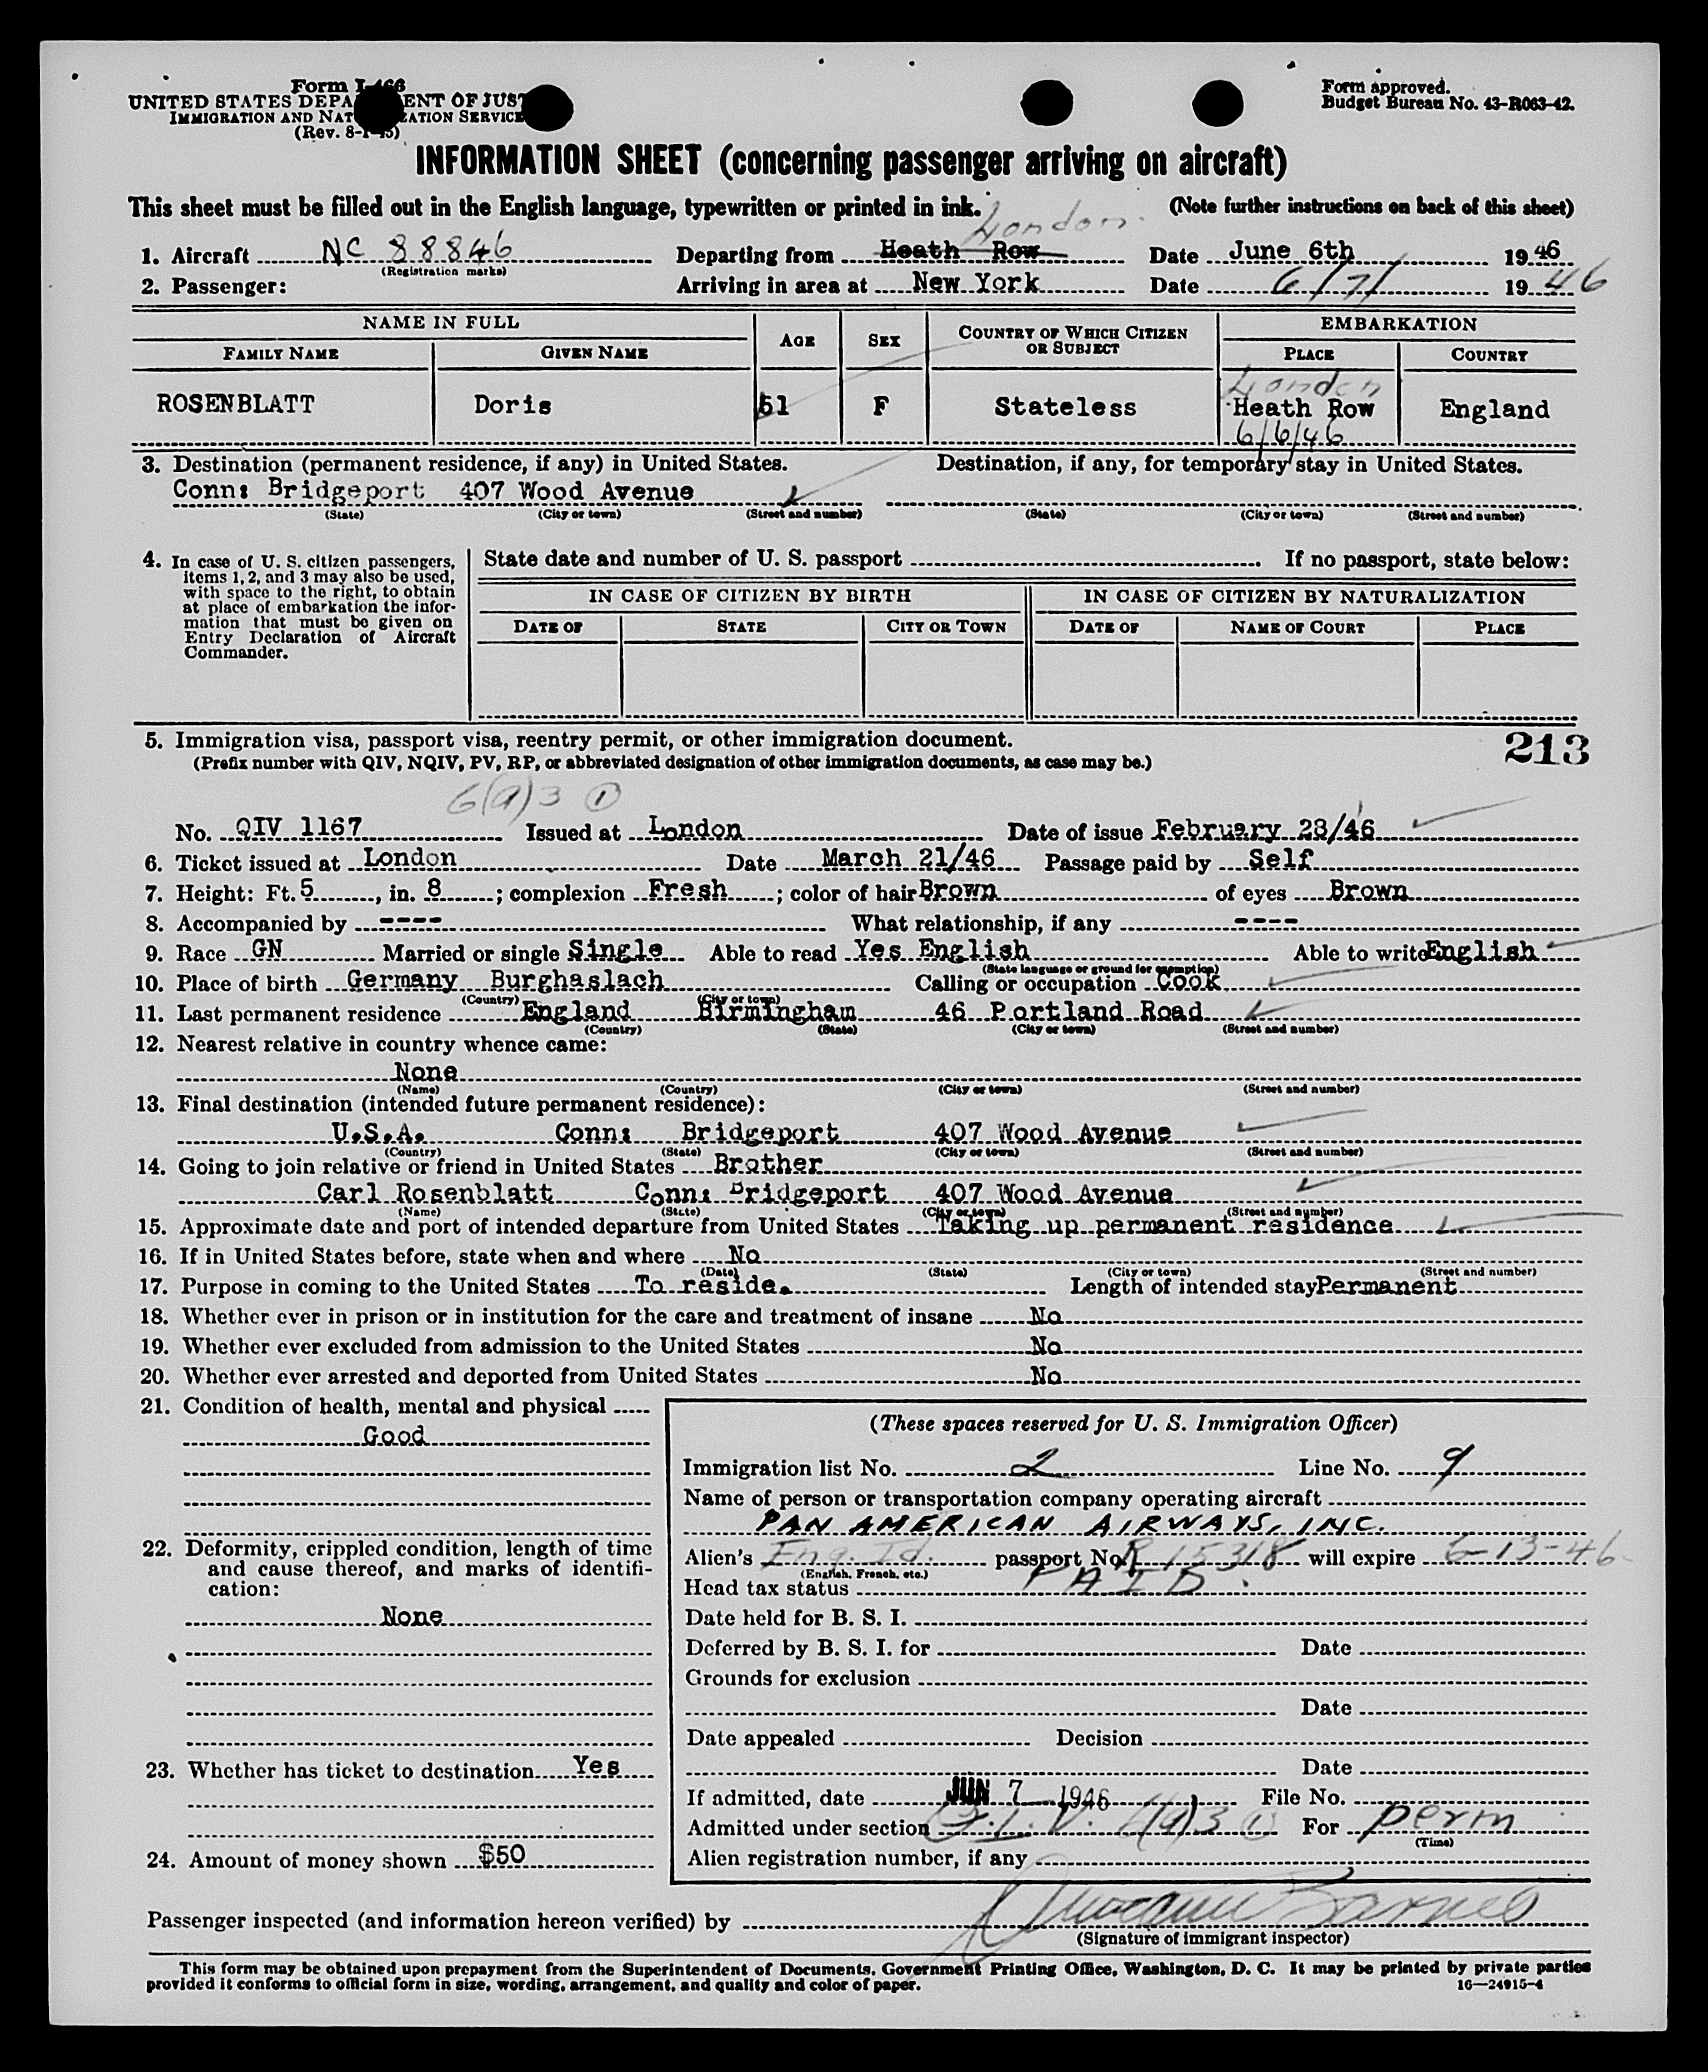 Form I-466
UNITED STATES DEPARTMENT OF JUSTICE
IMMIGRATION AND NATURALIZATION SERVICE
(Rev. 8-1-45)
Form approved.
Budget Bureau No. 43-R063-42.
INFORMATION SHEET (concerning passenger arriving on aircraft)
This sheet must be filled out in the English language, typewritten or printed in ink. (Note further instructions on back of this sheet)
London
1. Aircraft NC 88846 Departing from Heath Row Date June 6th 1946
(Registration marks)
2. Passenger: Arriving in area at New York Date 6/7/ 1946
NAME IN FULL AGE SEX COUNTRY OF WHICH CITIZEN OR SUBJECT EMBARKATION
FAMILY NAME GIVEN NAME PLACE COUNTRY
London
ROSENBLATT Doris 51 F Stateless Heath Row England
6/6/46
3. Destination (permanent residence, if any) in United States. Destination, if any, for temporary stay in United States.
Conn: Bridgeport 407 Wood Avenue
(State) (City or town) (Street and number) (State) (City or town) (Street and number)
4. In case of U. S. citizen passengers, items 1, 2, and 3 may also be used, with space to the right, to obtain at place of embarkation the information that must be given on Entry Declaration of Aircraft Commander.
State date and number of U. S. passport If no passport, state below:
IN CASE OF CITIZEN BY BIRTH IN CASE OF CITIZEN BY NATURALIZATION
DATE OF STATE CITY OR TOWN DATE OF NAME OF COURT PLACE
5. Immigration visa, passport visa, reentry permit, or other immigration document. 213
(Prefix number with QIV, NQIV, PV, RP, or abbreviated designation of other immigration documents, as case may be.)
6(a)3 1
No. QIV 1167 Issued at London Date of issue February 28/46
6. Ticket issued at London Date March 21/46 Passage paid by Self
7. Height: Ft. 5, in. 8; complexion Fresh; color of hair Brown of eyes Brown
8. Accompanied by ---- What relationship, if any ----
9. Race GN Married or single Single Able to read Yes English Able to write English
(State language or ground for exemption)
10. Place of birth Germany Burghaslach Calling or occupation Cook
(Country) (City or town)
11. Last permanent residence England Birmingham 46 Portland Road
(Country) (State) (City or town) (Street and number)
12. Nearest relative in country whence came:
None
(Name) (Country) (City or town) (Street and number)
13. Final destination (intended future permanent residence):
U.S.A. Conn: Bridgeport 407 Wood Avenue
(Country) (State) (City or town) (Street and number)
14. Going to join relative or friend in United States Brother
Carl Rosenblatt Conn: Bridgeport 407 Wood Avenue
(Name) (State) (City or town) (Street and number)
15. Approximate date and port of intended departure from United States Taking up permanent residence
16. If in United States before, state when and where No
(Date) (State) (City or town) (Street and number)
17. Purpose in coming to the United States To reside. Length of intended stay Permanent
18. Whether ever in prison or in institution for the care and treatment of insane No
19. Whether ever excluded from admission to the United States No
20. Whether ever arrested and deported from United States No
21. Condition of health, mental and physical
Good
22. Deformity, crippled condition, length of time
and cause thereof, and marks of identifi-
cation:
None
23. Whether has ticket to destination Yes
24. Amount of money shown $50
(These spaces reserved for U. S. Immigration Officer)
Immigration list No. 2 Line No. 9
Name of person or transportation company operating aircraft
PAN AMERICAN AIRWAYS, INC.
Alien's Eng. Id. passport No. R 15318 will expire 6-13-46
(English, French, etc.)
Head tax status PAID.
Date held for B. S. I.
Deferred by B. S. I. for Date
Grounds for exclusion
Date
Date appealed Decision
Date
If admitted, date JUN 7 1946 File No.
Admitted under section Q.I.V. 6(a)3 1 For perm
(Time)
Alien registration number, if any
Passenger inspected (and information hereon verified) by
(Signature of immigrant inspector)
This form may be obtained upon prepayment from the Superintendent of Documents, Government Printing Office, Washington, D. C. It may be printed by private parties
provided it conforms to official form in size, wording, arrangement, and quality and color of paper. 16—24915-4